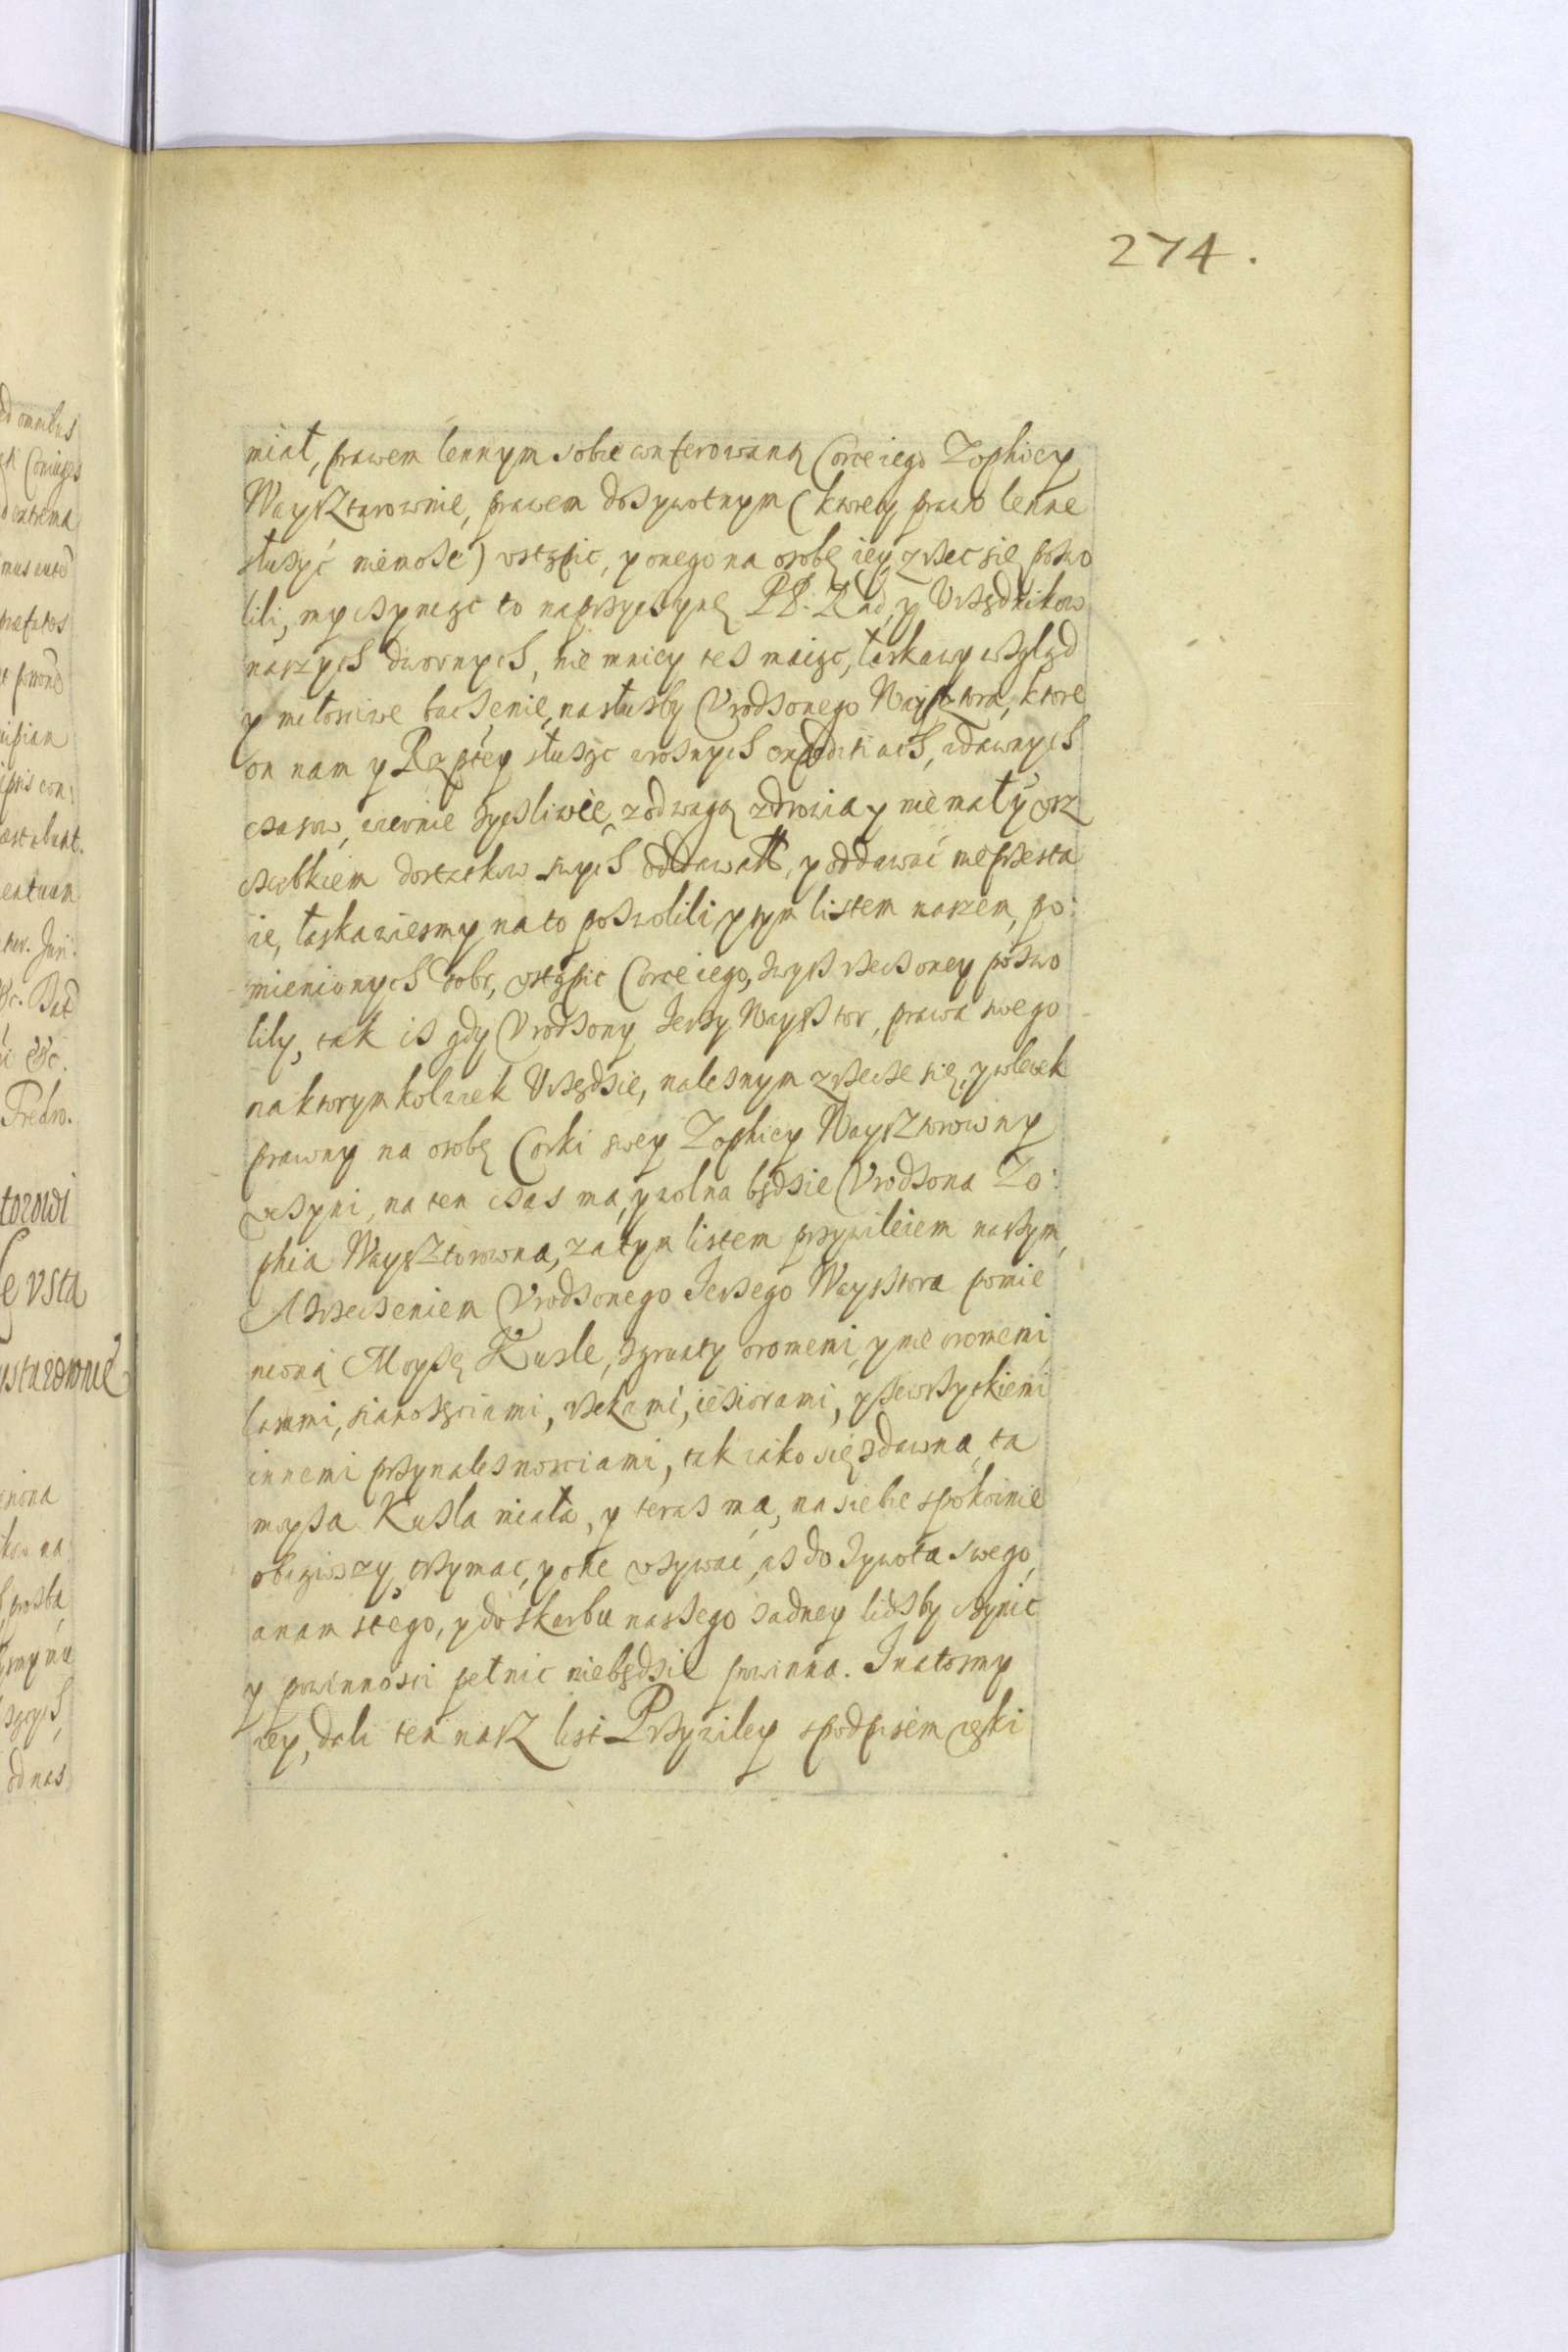 274.
miał, prawem lennym sobie conferowaną Corce iego Zophiey
Waysztorownie, prawem dożywotnym (ktorey prawo lenne
służyć niemoże) vstąpic, y onego na osobę iey zrzec się pozwo
lili, my czyniąc to naprzyczynę PP. Rad, y Vrzędnikow
naszych dwornych, nie mniey też maiąc, łaskawy wzgląd
y miłosciwe baczenie, nasłużby Vrodzonego Waysztora, ktore
on nam y Rzptey służąc wroznych expeditiach, zdawnych
czasow, wiernie życzliwie, zodwagą zdrowia y niemały vsz
czerbkiem dostatkow swych oddawał, y oddawać nieprzesta
ie, łaskawiesmy na to pozwolili y tym listem naszem, po
mienionych dobr, vstąpic Corce iego, zwysz rzeczoney pozwo
lily, tak iż gdy Vrodzony Jerzy Waysztor, prawa swego
na ktorymkolwiek Vrzędzie, należnym zrzecze się, y wlewek
prawny na osobę Corki swey Zophiey Waysztorowny
vczyni, na ten czas ma, y wolna będzie Vrodzona Zo:
phia Waysztorowna, za tym listem przywileiem naszym,
A zrzeczeniem Vrodzonego Jerzego Waysztora pomie
nioną Moyzę Kuzle, zgrunty oromemi, y nie oromemi
lasami, sianożęciami, rzekami, ieziorami, y zewszytkiemi
innemi przynależnosciami, tak iako się zdawna, ta
moyza Kuzla miała, y teraz ma, na siebie spokoinie
obiąwszy trzymac, y one vżywać, aż do żywota swego,
a nam ztego, y do skarbu naszego żadney liczby czynic
y powinnosci pełnic niebędzie powinna. Jnatosmy
iey, dali ten nasz list Przywiley zpodpisem ręki